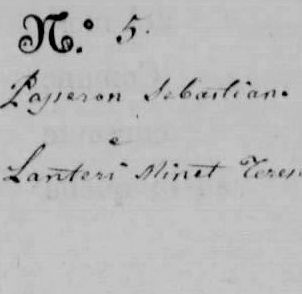 N.º 5.
Passeron Sebastiano
e
Lanteri Minet Teres